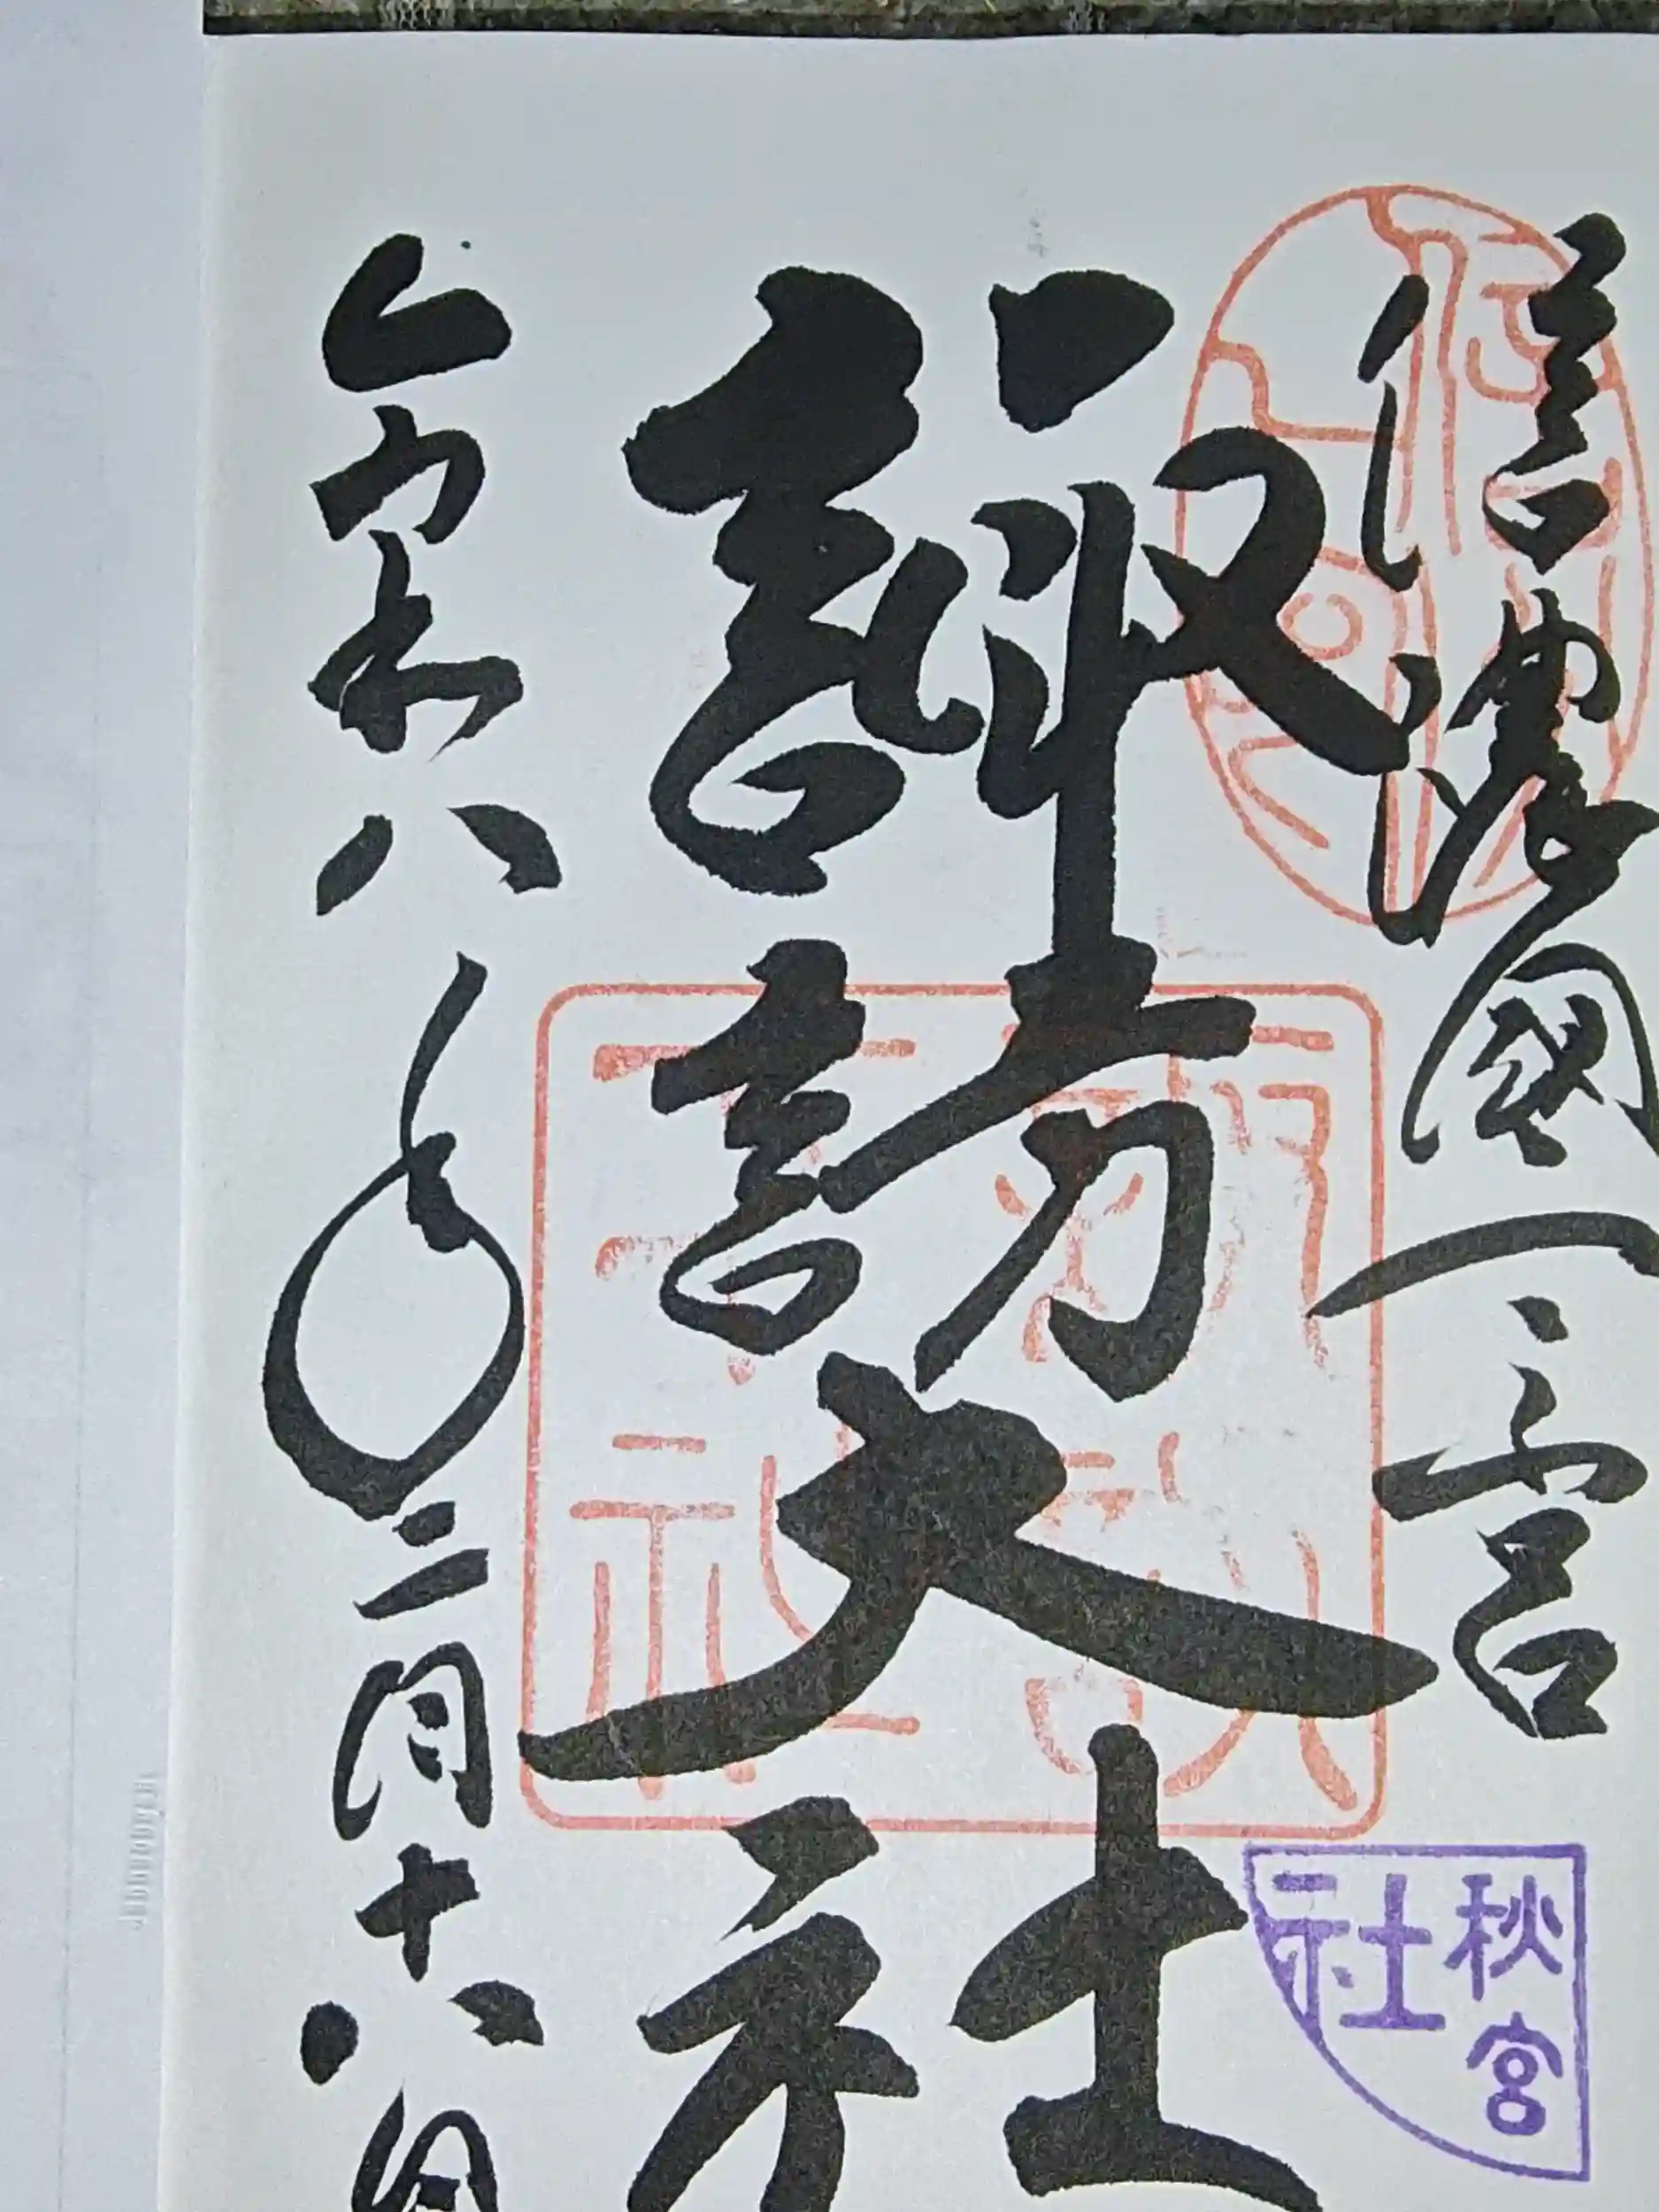 信濃國一宮
諏訪大社
令和八年二月十八日
秋宮
社